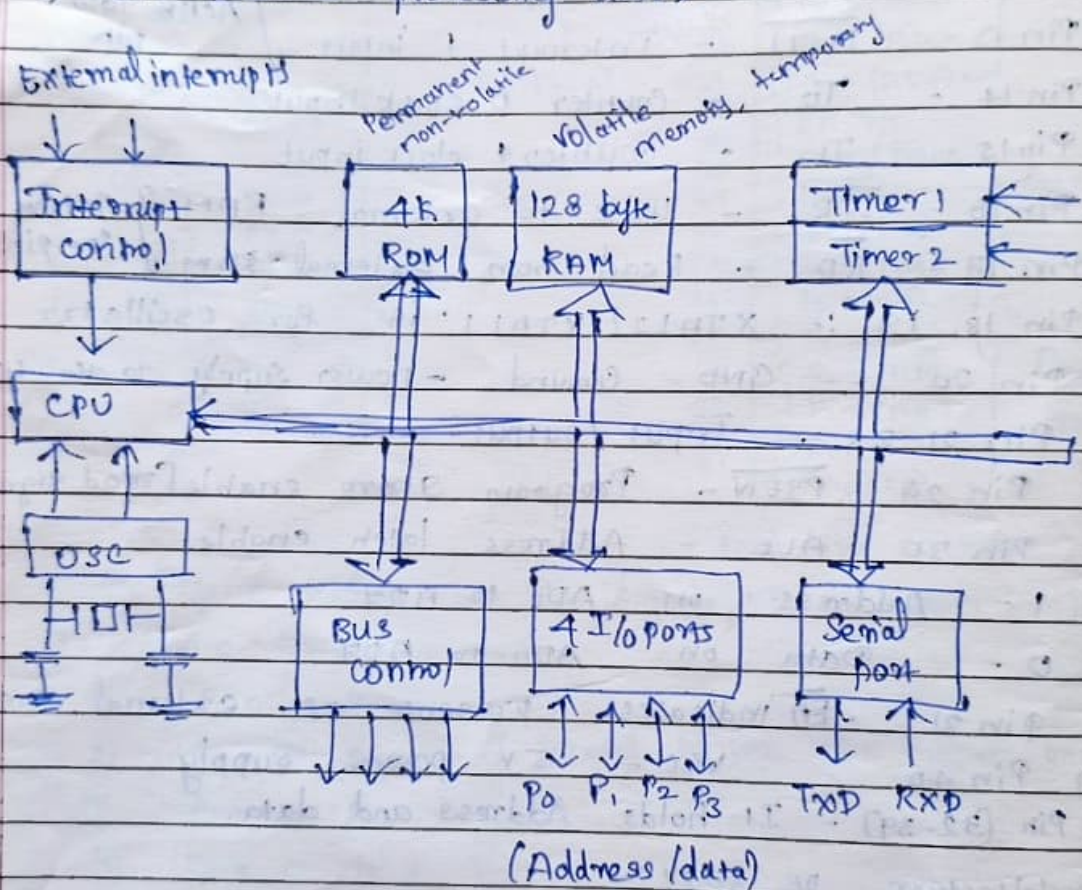 External interrupts
Permanent
non-volatile
Volatile
memory, temporary
Interrupt
control
4K
ROM
128 byte
RAM
Timer 1
Timer 2
CPU
OSC
BUS
control
4 I/O ports
Serial
port
P0 P1 P2 P3
TXD RXD
(Address /data)